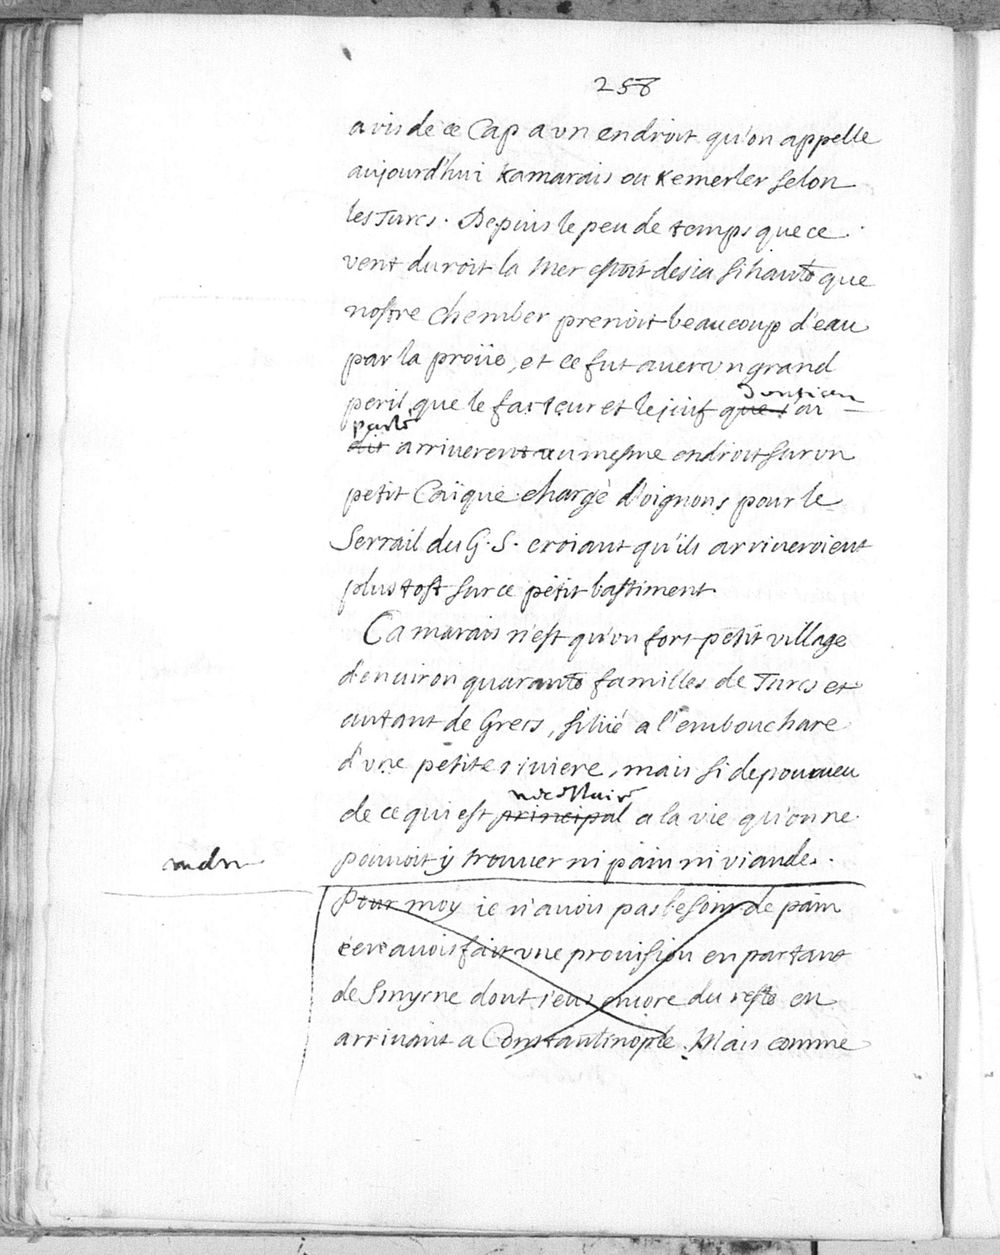 258
a vis de ce Cap a vn endroit qu'on appelle
aujourd'hui Kamarais ou Kemerler selon
les Turcs. Depuis le peu de temps que ce
vent duroit la mer estoit desia si haute que
nostre chember prenoit beaucoup d'eau
par la proüe, et ce fut auec vn grand
dont i'en
peril que le facteur et le juif que i'ai
parlé
dit arriuerent au mesme endroit sur vn
petit Caïque chargé d'oignons pour le
Serrail du G. S. croiant qu'ils arriueroient
plus tost sur ce petit bastiment.
Camarais n'est qu'vn fort petit village
d'enuiron quarante familles de Turcs et
autant de Grecs, situé a l'embouchure
d'vne petite riuiere, mais si depourueu
necessaire
de ce qui est principal a la vie qu'on ne
pouuoit y trouuer ni pain ni viandes.
Pour moy ie n'auois pas besoin de pain
i'en auois fait vne prouision en partant
de Smyrne dont i'eus encore du reste en
arriuant a Constantinople. Mais comme